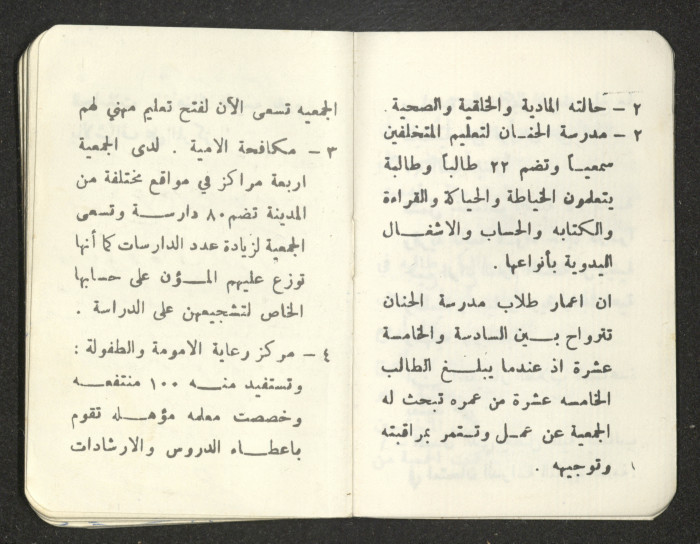 ٢ - حالته المادية والخلقية والصحية .
٢ - مدرسة الحنان لتعليم المتخلفين
سمعياً وتضم ٢٢ طالباً وطالبة
يتعلمون الخياطة والحياكة والقراءة
والكتابه والحساب والاشغال
اليدوية بأنواعها .
ان اعمار طلاب مدرسة الحنان
تتراوح بين السادسة والخامسة
عشرة اذ عندما يبلغ الطالب
الخامسه عشرة من عمره تبحث له
الجمعية عن عمل وتستمر بمراقبته
وتوجيهه .
الجمعيه تسعى الآن لفتح تعليم مهني لهم
٣ - مكافحة الامية . لدى الجمعية
اربعة مراكز في مواقع مختلفة من
المدينة تضم ٨٠ دارسة وتسعى
الجمعية لزيادة عدد الدارسات كما أنها
توزع عليهم المؤن على حسابها
الخاص لتشجيعهن على الدراسة .
٤ - مركز رعاية الامومة والطفولة :
وتستفيد منه ١٠٠ منتفعه
وخصصت معلمه مؤهله تقوم
باعطاء الدروس والارشادات